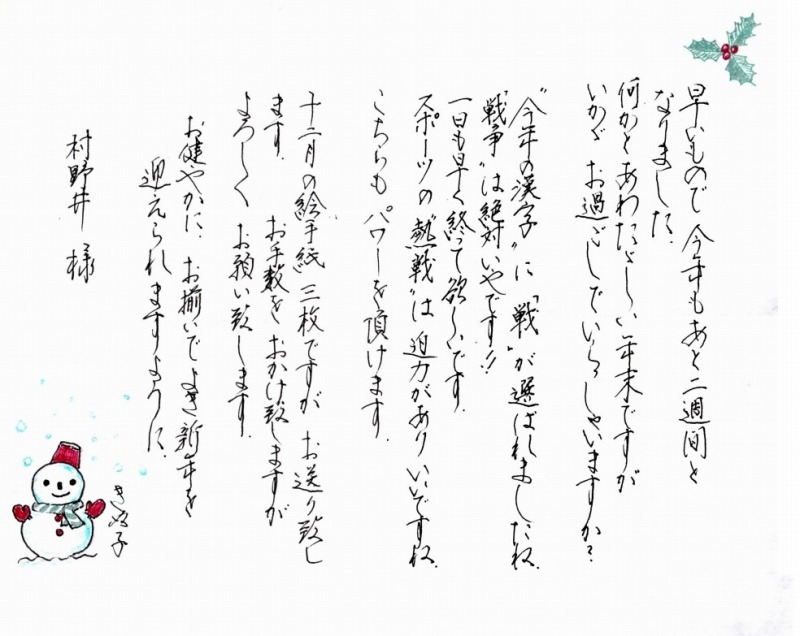 早いもので 今年もあと二週間と
なりました。
何かとあわただしい年末ですが
いかゞお過ごしでいらっしゃいますか?
"今年の漢字"に「戦」が選ばれましたね。
"戦争"は絶対いやです!!
一日も早く終って欲しいです。
スポーツの"熱戦"は迫力がありいいですね。
こちらも パワーを頂けます。
十二月の絵手紙 三枚ですが お送り致し
ます。
お手数を おかけ致しますが
よろしく お願い致します。
お健やかに、お揃いで よき新年を
迎えられますように。
村野井 様
きぬ子